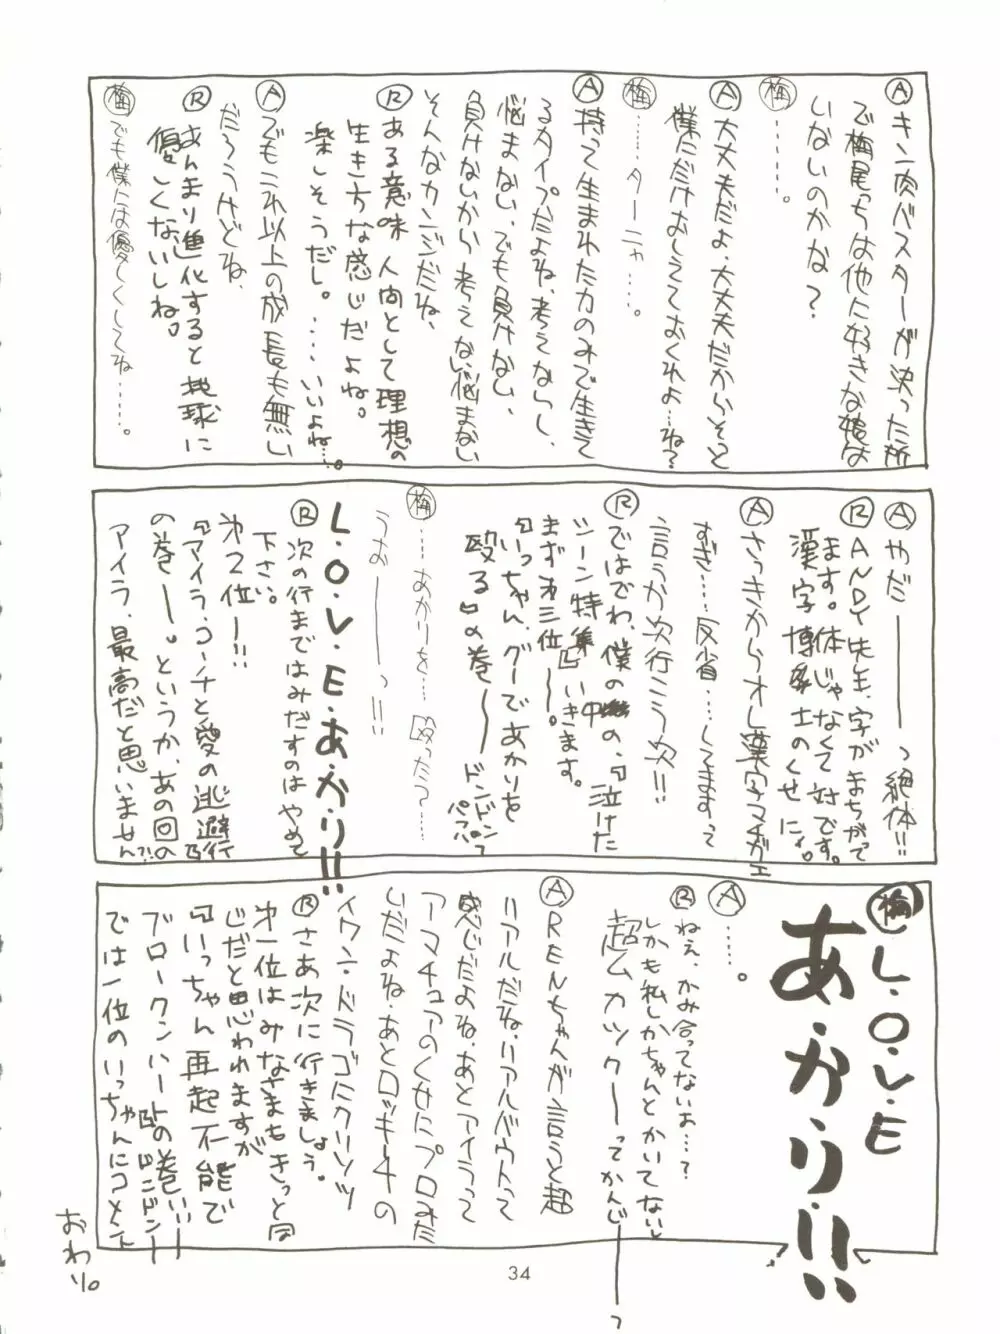 Ⓐキン肉バスターが決った所
で梅尾っちは他に好きな娘は
いないのかな？
㊙梅………。
Ⓐ大丈夫だよ、大丈夫だからそっと
僕にだけおしえておくれよ…ね？
梅………ターニャ……。
Ⓐ持って生まれた力のみで生きて
るタイプだよね、考えてないし、
悩まない、でも負けない、
負けないから考えない、悩まない
そんなカンジだね、
Ⓡある意味人間として理想の
生き方な感じだよね。
楽しそうだし。……いいよね…。
Ⓐでもこれ以上の成長も無い
だろうけどね、
Ⓡあんまり進化すると地球に
優しくないしね。
梅でも僕には優しくしてね……。
Ⓐやだ――――っ絶体!!
ⓇANDY先生、字がまちがって
ます。体じゃなくて対です。
漢字博士のくせにょ。
Ⓐさっきからオレ漢字マチガエ
すぎ……反省……してますって
言うか次行こう次!!
Ⓡではでわ、僕の中の、『泣けた
シーン特集』いきます。
まず第三位――。
『いっちゃん、グーであかりを
殴る』の巻――ドンドンパフパフーっ
梅……あかりを…殴った？……
うお――――っ!!
L・O・V・E・あ・か・り!!
Ⓡ次の行まではみだすのはやめて
下さい。
第2位――!!
『アイラ、コーチと愛の逃避行』
の巻――。というか、あの回の
アイラ、最高だと思いません?!
梅L・O・V・E
あ・か・り・!!
Ⓐ……。
Ⓡねえ、かみ合ってないよ…？
しかも私しかちゃんとかいてないし
超ムカツク――ってかんじ――――っ
ⒶRENちゃんが言うと超
リアルだね、リアルバウトって
感じだよね、あとアイラって
アーマチュアのくせにプロみた
いだよね、あとロッキー4の
イワン・ドラゴにクリソツ
Ⓡさあ次に行きましょう。
第一位はみなさまもきっと同
じだと思われますが
『いっちゃん再起不能で
ブロークンハート』の巻い――!!ドンドン――
では一位のいっちゃんにコメント
おわり。
34